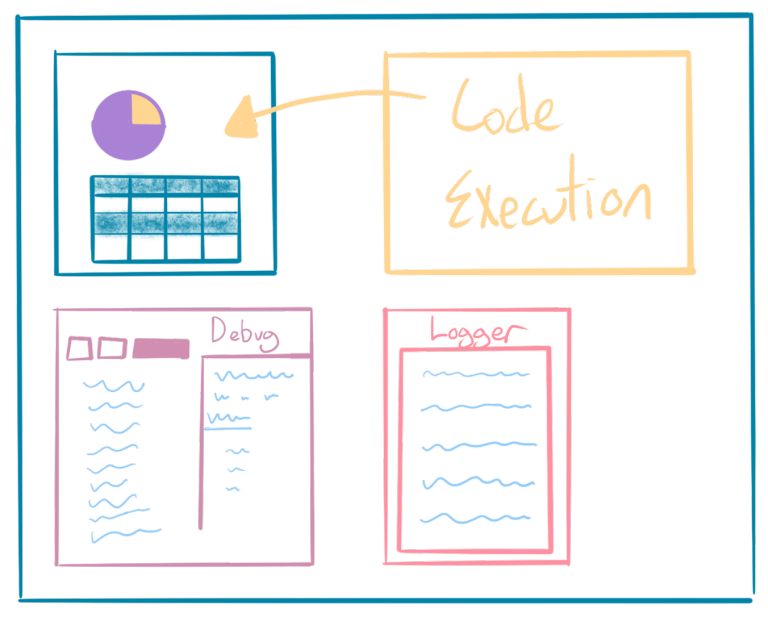 Code
Execution
Debug
Logger